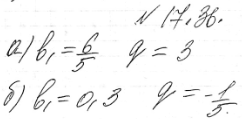 N 17.36.
а) b₁ = 6/5 q = 3
б) b₁ = 0,3 q = -1/5.